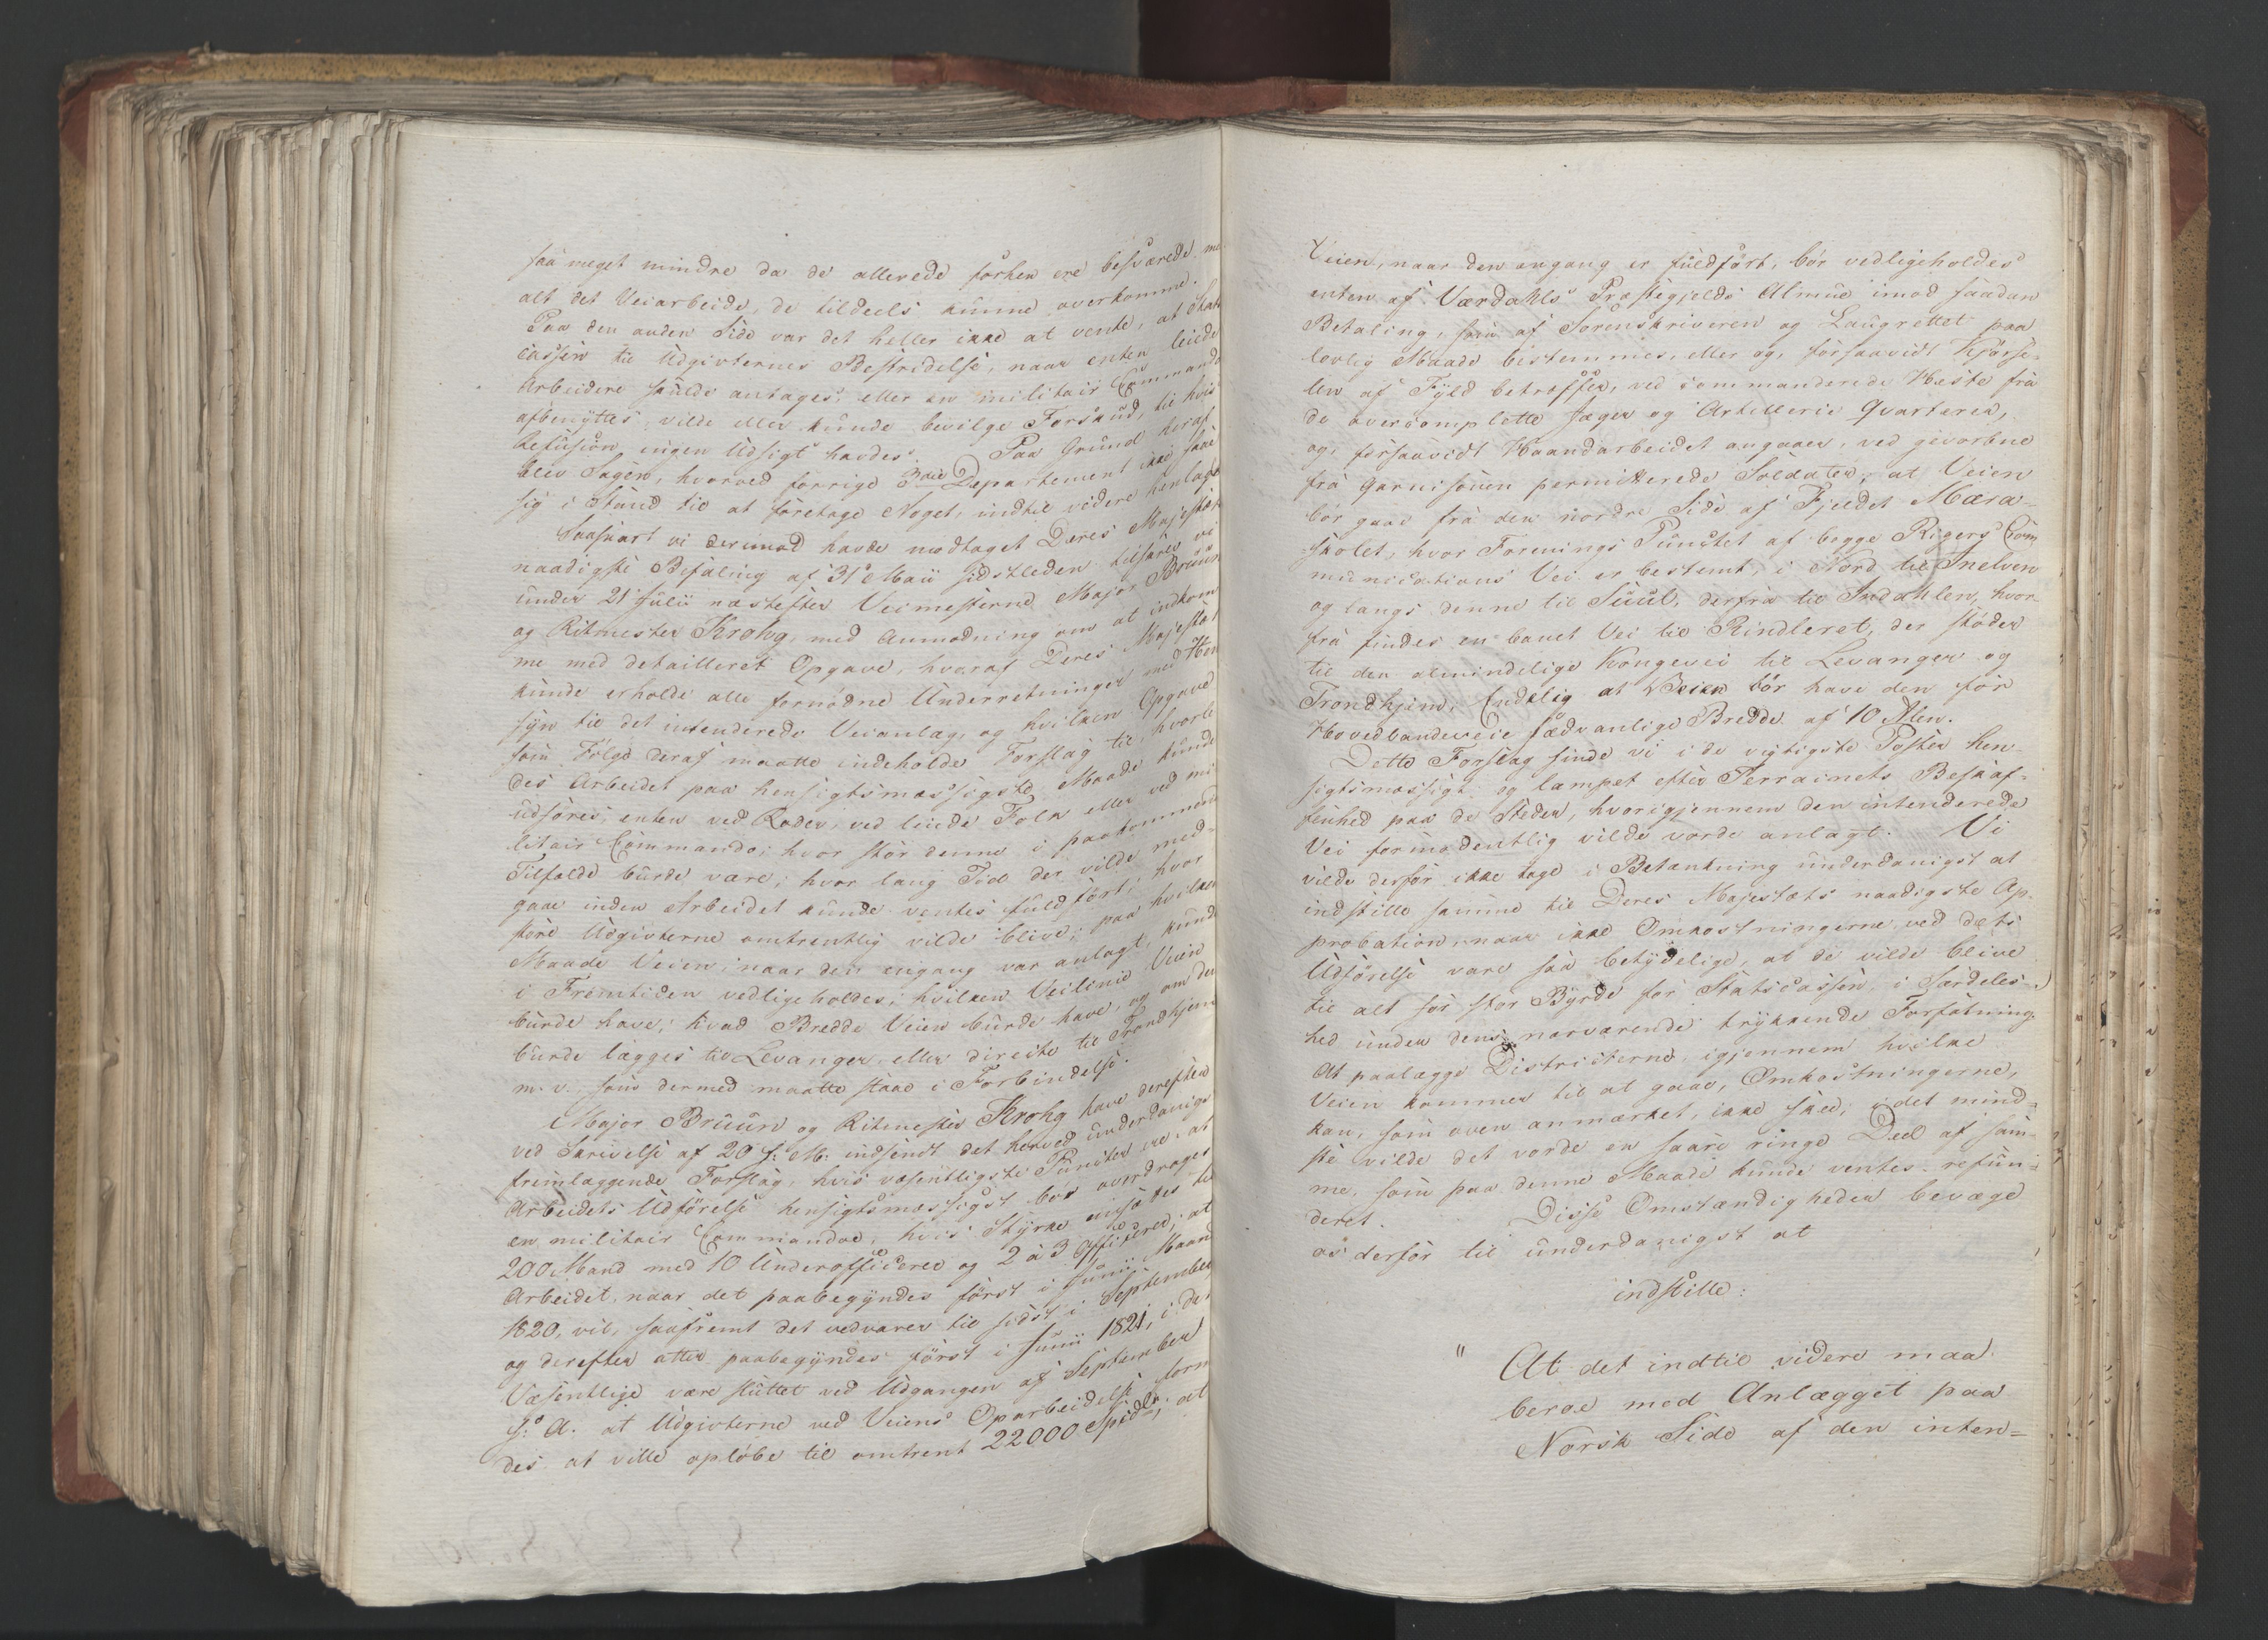 saa meget mindre da de allerede forhen ere besværede me
alt det Veiarbeide, de tildeels kunne overkomme.
Paa den anden Side var det heller ikke at vente, at Stats
cassen til Udgivternes Bestridelse, naar enten leiede
Arbeidere skulde antages, eller en militair Commando
afbenyttes, vilde eller kunde bevilge Forskud, til hvis
Refusion ingen Udsigt havdes. Paa Grund heraf
blev Sagen, hvorved forrige 3die Departement ikke saae
sig i Stand til at foretage Noget, indtil videre henlagt
Saasnart vi derimod havde modtaget Deres Majestæts
naadigste Befaling af 31 Maii sidstleden tilskrev vi
under 21 Julii næstefter Veimesterne Major Bruun
og Ritmester Krohg, med Anmodning om at indkom
me med detailleret Opgave, hvoraf Deres Majestæt
kunde erholde alle fornødne Underretninger med Hen
syn til det intenderede Veianlæg, og hvilken Opgave
som Følge deraf maatte indeholde Forslag til, hvorle
des Arbeidet paa hensigtsmæssigste Maade kunde
udføres, enten ved Roder, ved leiede Folk eller ved mi
litair Commando; hvor stor denne i paakommende
Tilfælde burde være; hvor lang Tid der vilde med-
gaae inden Arbeidet kunde ventes fuldført; hvor
store Udgivterne omtrentlig vilde blive; paa hvilken
Maade Veien, naar den engang var anlagt, kunde
i Fremtiden vedligeholdes; hvilken Veilinie Veien
burde have; hvad Bredde Veien burde have, og om den
burde lægges til Levanger, eller directe til Trondhjem
m. v. som dermed maatte staae i Forbindelse.
Major Bruun og Ritmester Krohg have derefter
ved Skrivelse af 20 f: M: indsendt det herved underdanigst
fremlæggende Forslag, hvis væsentligste Puncter ere, at
Arbeidets Udførelse hensigtsmæssigst bør overdrages
en militair Commandoe, hvis Styrke ansættes til
200 Mand med 10 Underofficerer og 2 à 3 Officerer, at
Arbeidet, naar det paabegyndes først i Junii Maaned
1820, vil, saafremt det vedvarer til sidst i September
og derefter atter paabegyndes først i Junii 1821, i det
Væsentlige være sluttet ved Udgangen af September
s: A. at Udgivterne ved Veiens Oparbeidelse form
des at ville opløbe til omtrent 22000 Spdlr; at
Veien, naar den engang er fuldført, bør vedligeholdes
enten af Værdahls Præstegjelds Almue imod saadan
Betaling, som af Sorenskriveren og Laugrettet paa
lovlig Maade bestemmes, eller og, forsaavidt Kjørse-
len af Fyld betræffer, ved commanderede Heste fra
de overcomplette Jæger og Artillerie Qvarterer,
og, forsaavidt Haandarbeidet angaaer, ved gevorbne
fra Garnisonen permitterede Soldater; at Veien
bør gaae fra den nordre Side af Fjeldet Mæra-
skolet, hvor Forenings Punctet af begge Rigers Com
munications Vei er bestemt, i Nord til Inelven
og langs denne til Suul, derfra til Indahlen, hvor-
fra findes en banet Vei til Rindleret, der støder
til den almindelige Kongevei til Levanger og
Trondhjem. Endelig at Veien bør have den for
Hovedlandeveie sædvanlige Bredde af 10 Alen.
Dette Forslag finde vi i de vigtigste Poster hen-
sigtsmæssigt og lampet efter Terrainets Beskaf-
fenhed paa de Steder, hvorigjennem den intenderede
Vei formodentlig vilde vorde anlagt. Vi
vilde derfor ikke tage i Betænkning underdanigst at
indstille samme til Deres Majestæts naadigste Ap-
probation, naar ikke Omkostningerne ved dets
Udførelse vare saa betydelige, at de vilde blive
til alt for stor Byrde for Statscassen, i Særdeles-
hed under dens nærværende trykkende Forfatning.
At paalægge Districterne, igjennem hvilke
Veien kommer til at gaae, Omkostningerne,
kan, som oven anmærket, ikke skee, i det mind-
ste vilde det vorde en saare ringe Deel af sam-
me, som paa denne Maade kunde ventes refun-
deret. Disse Omstændigheder bevæge
os derfor til underdanigst at
indstille:
" At det indtil videre maa
beroe med Anlægget paa
Norsk Side af den inten=